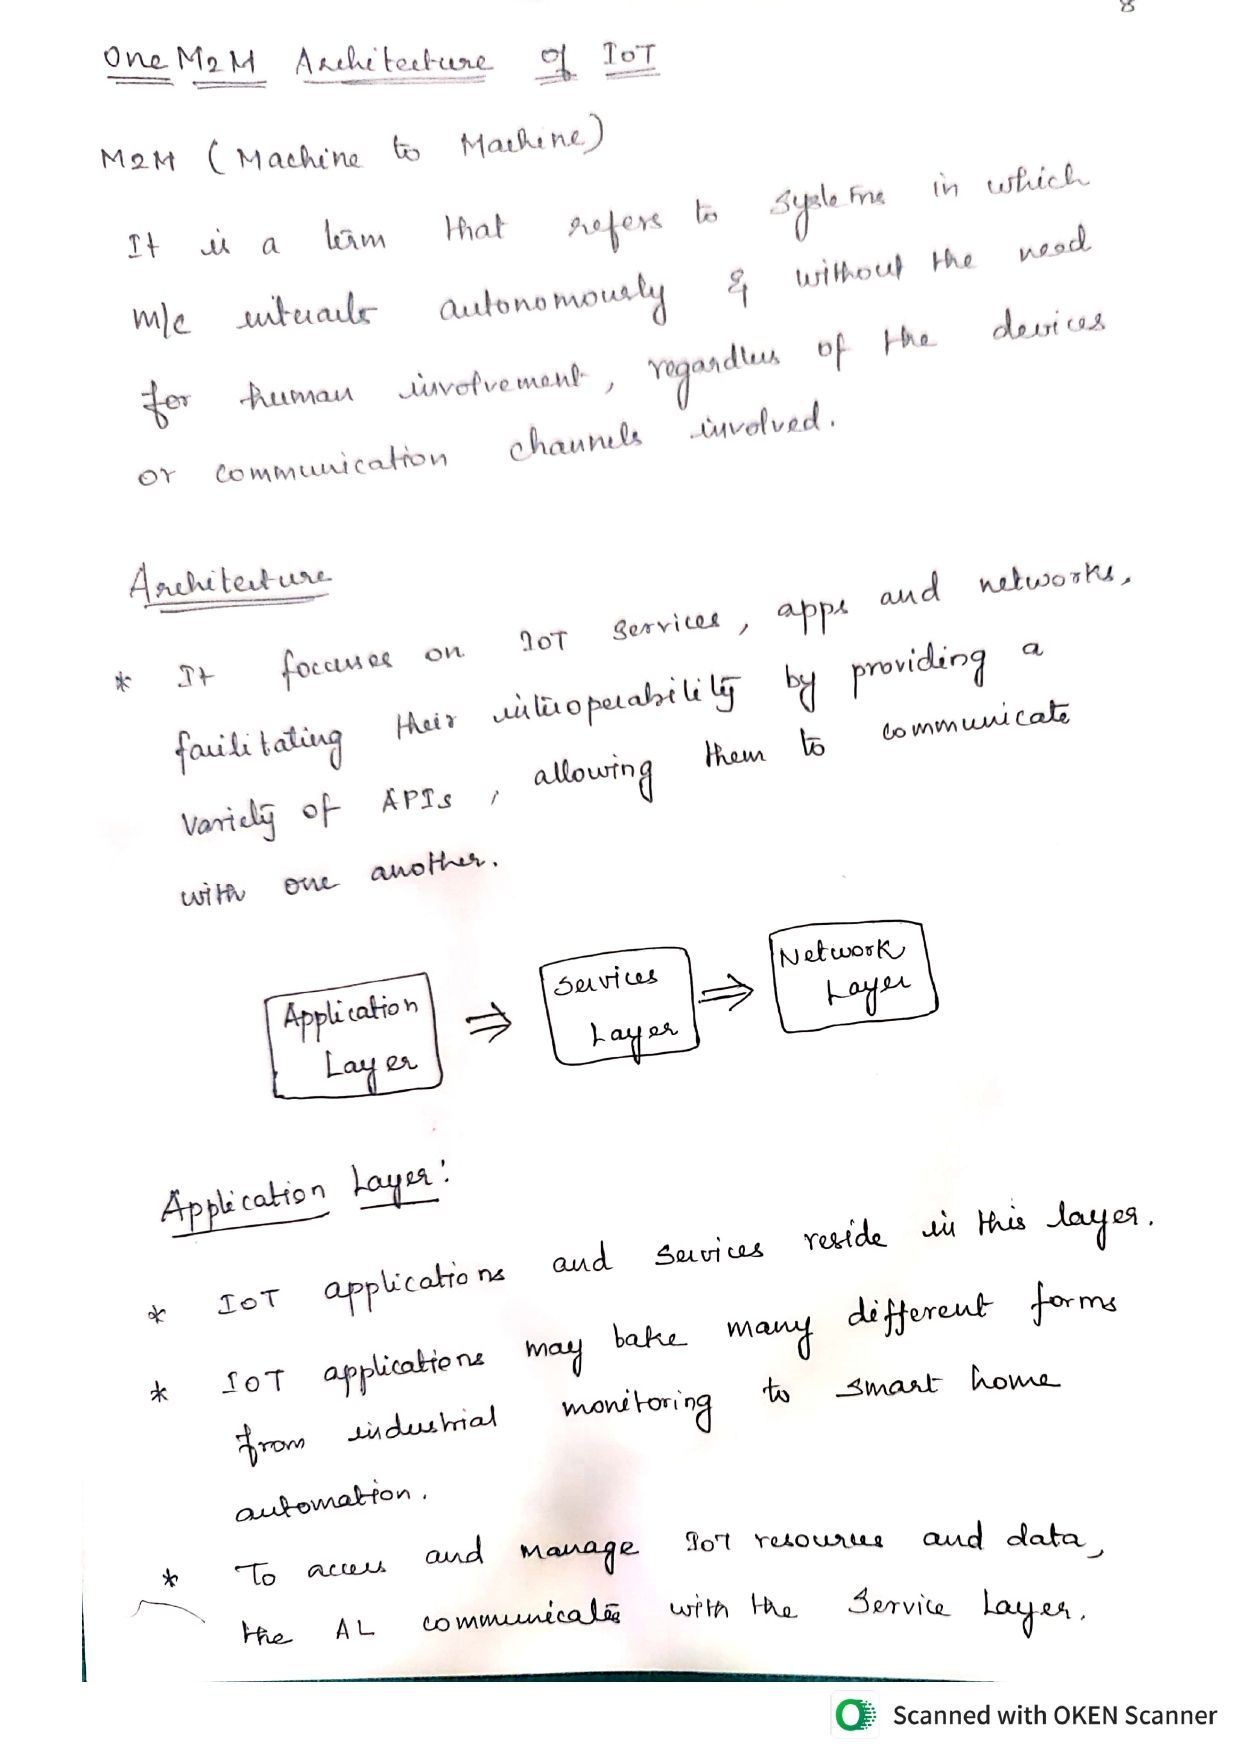 8
One M2M Architecture of IoT
M2M (Machine to Machine)
It is a term that refers to systems in which
m/c interacts autonomously & without the need
for human involvement, regardless of the devices
or communication channels involved.
Architecture
* It focuses on IoT services, apps and networks,
facilitating their interoperability by providing a
variety of APIs, allowing them to communicate
with one another.
Application Layer ⇒ Services Layer ⇒ Network Layer
Application Layer:
* IoT applications and services reside in this layer.
* IoT applications may take many different forms
from industrial monitoring to smart home
automation.
* To access and manage IoT resources and data,
the AL communicates with the Service Layer.
Scanned with OKEN Scanner